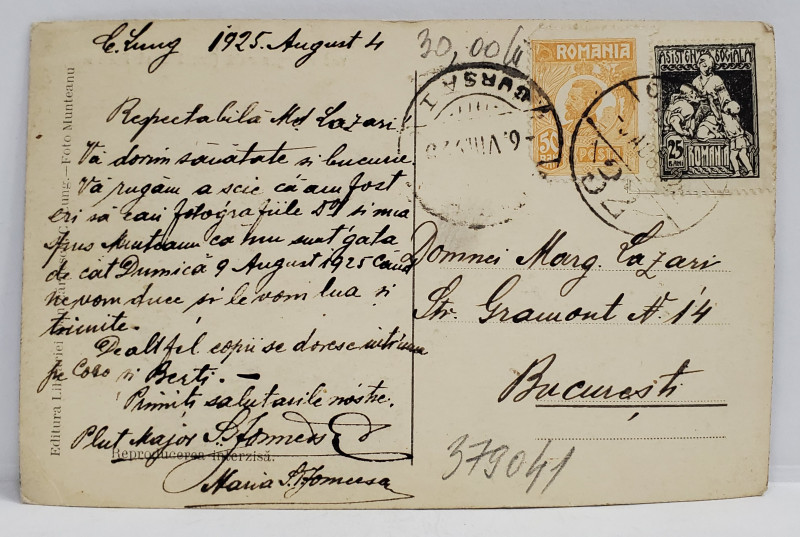 C. Lung 1925. August 4
30,00/
Repectabilă Md. Lazari
Vă dorim sănătate si bucurie.
Vă rugăm a scie că am fost
eri să eau fotografiile Dl si mea
spus Munteanu că nu sunt gata
de cât Dumică 9 August 1925 când
ne vom duce si le vom lua si
trimite.
De altfel copii se doresc
pe Coco si Berti. —
Primiți salutările nostre.
Plut Major S.
Maria S.
Reproducerea interzisă.
Editura Librăriei C. Lung.—Foto Munteanu
ROMANIA
50
BANI
POSTA
ASISTENȚA SOCIALA
25
BANI
ROMANIA
BURSA I
6. VIII. 925
Domnei Marg Lazari
Str. Gramont N. 14
București
379041